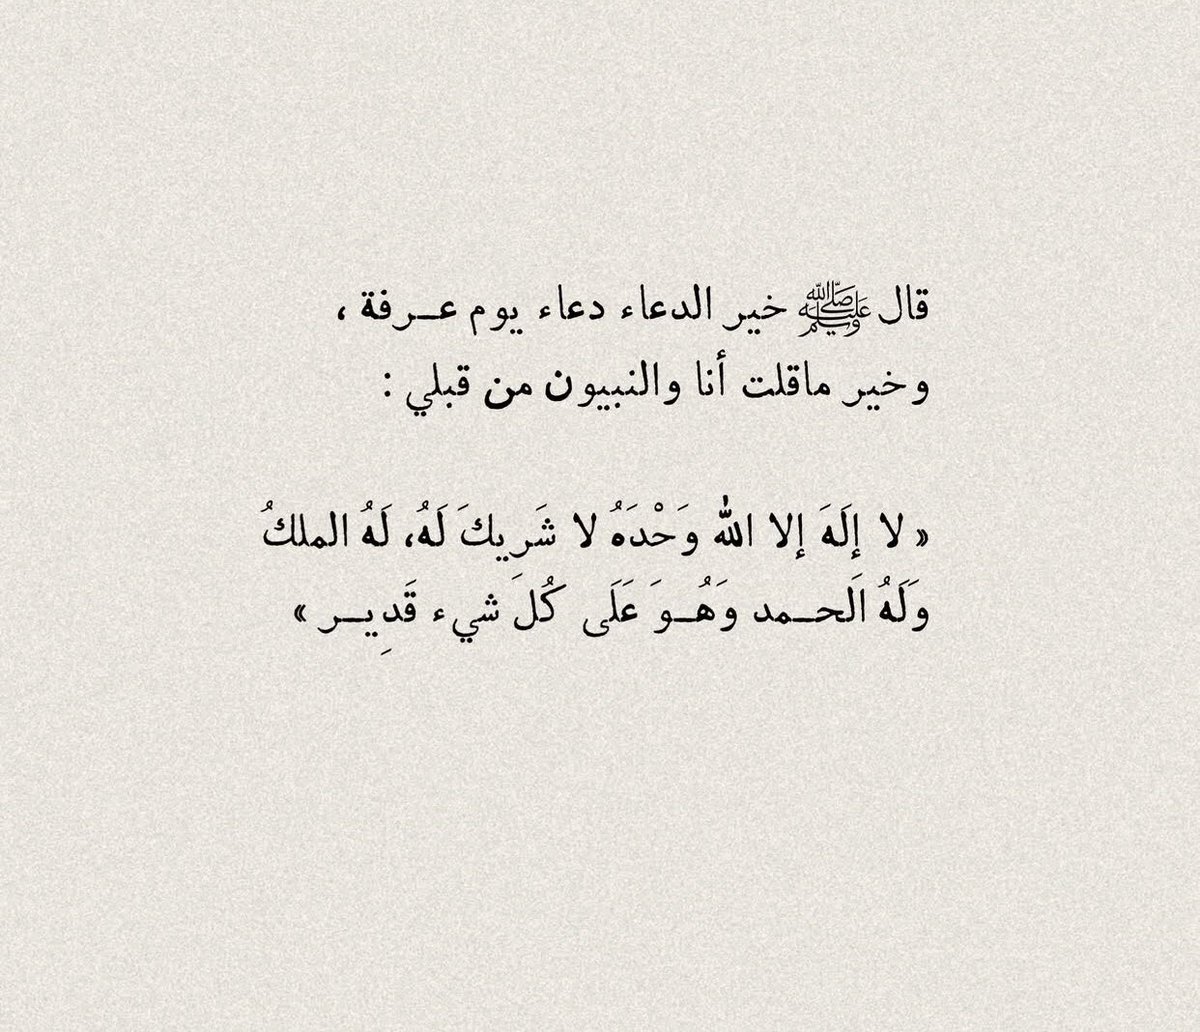 قال ﷺ خير الدعاء دعاء يوم عـــرفة ،
وخير ماقلت أنا والنبيون من قبلي :
« لا إلَهَ إلا الله وَحْدَهُ لا شَرِيكَ لَهُ، لَهُ الملكُ
وَلَهُ الَحـــمد وَهُـــوَ عَلَى كُلَ شيء قَدِيـــر »